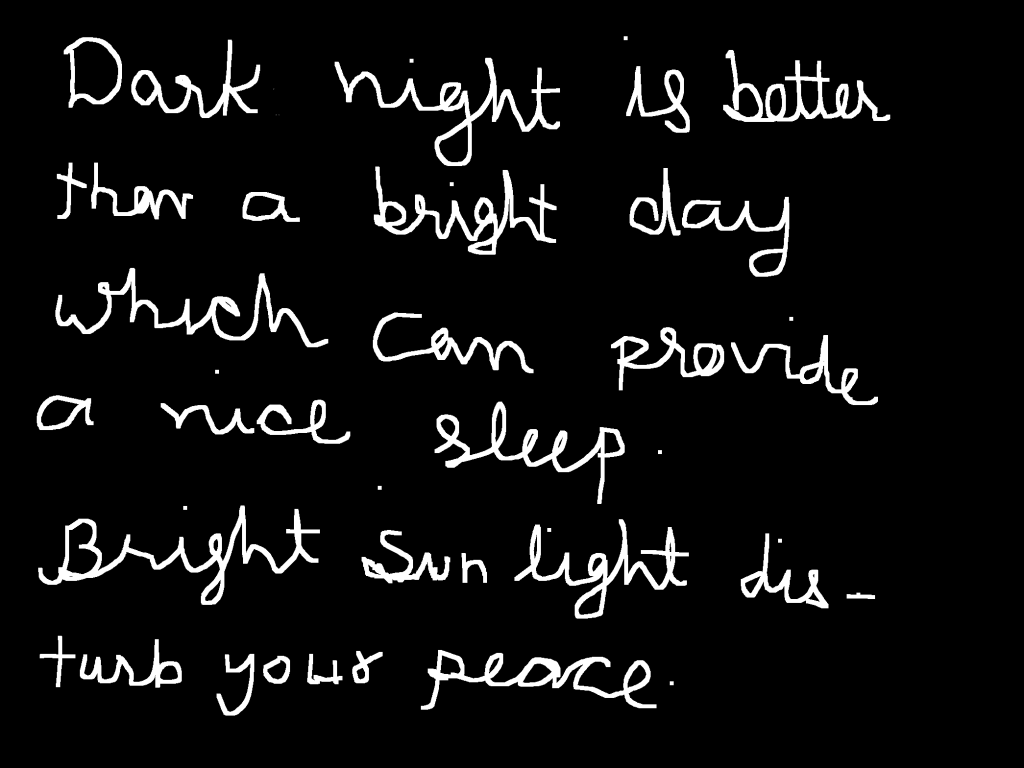 Dark night is better
then a bright day
which can provide
a nice sleep.
Bright Sun light dis-
turb your peace.